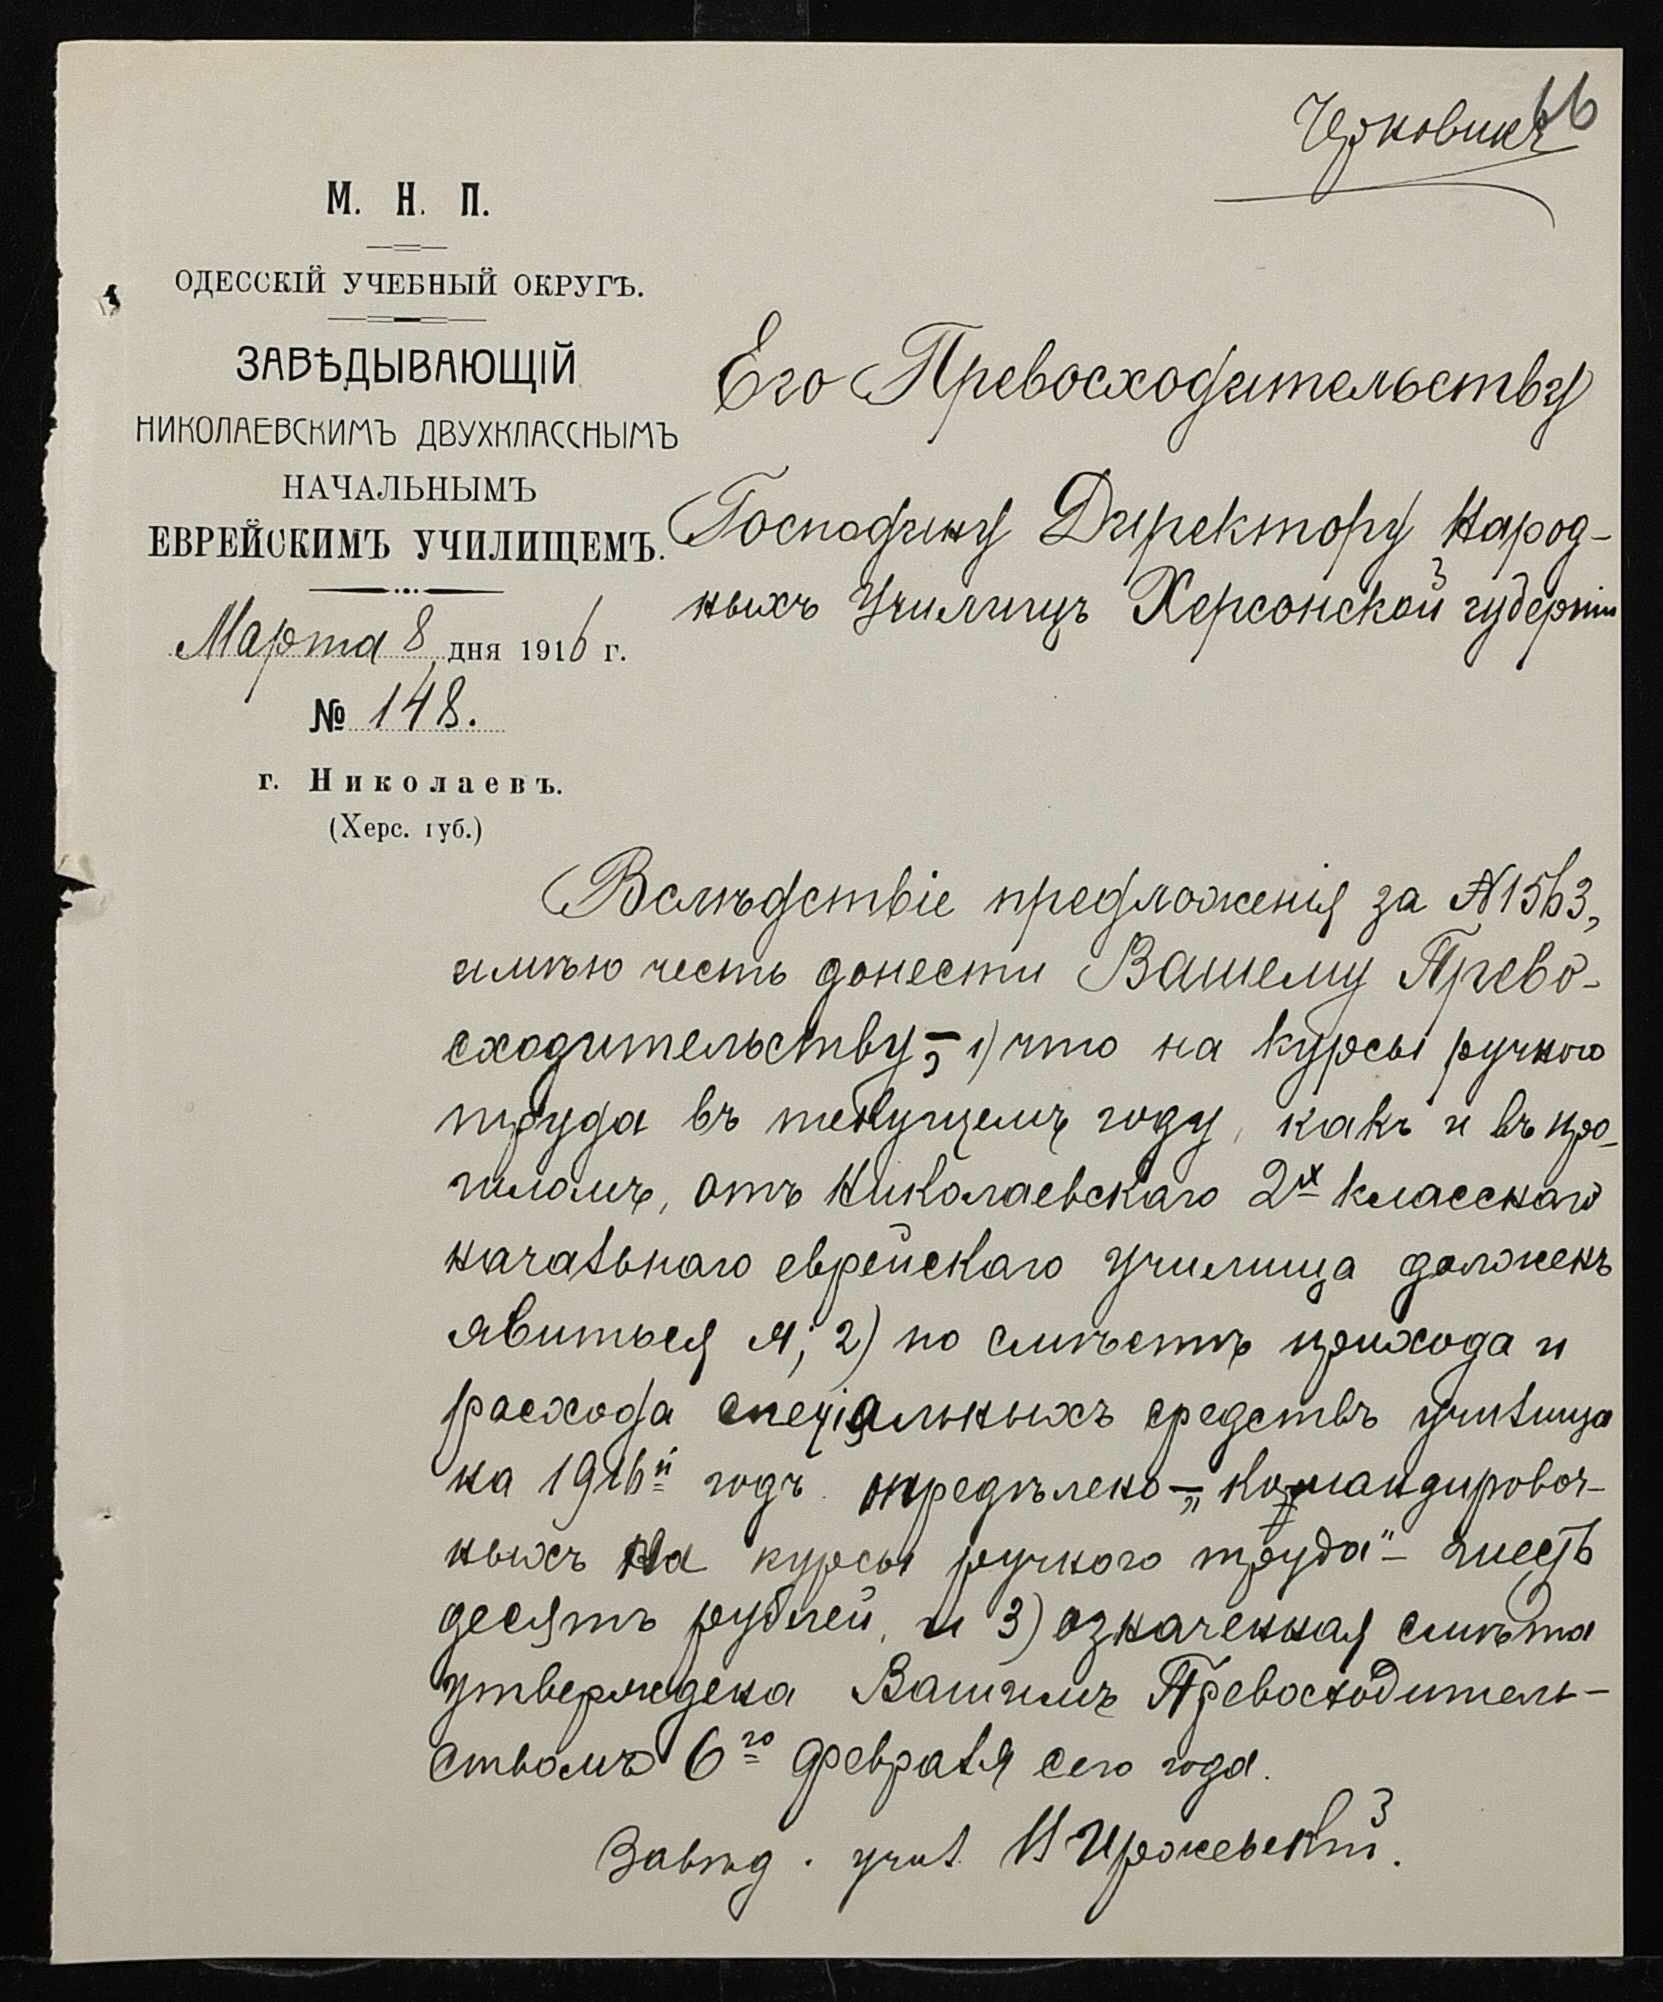 Черновикъ
66
М. Н. П.
ОДЕССКІЙ УЧЕБНЫЙ ОКРУГЪ.
ЗАВѢДЫВАЮЩІЙ
НИКОЛАЕВСКИМЪ ДВУХКЛАССНЫМЪ
НАЧАЛЬНЫМЪ
ЕВРЕЙСКИМЪ УЧИЛИЩЕМЪ.
Марта 8 дня 1916 г.
№ 148.
г. Николаевъ.
(Херс. губ.)
Его Превосходительству
Господину Директору Народ-
ныхъ Училищъ Херсонской губерніи
Вслѣдствіе предложенія за №1563,
имѣю честь донести Вашему Прево-
сходительству, – 1) что на курсы ручного
труда въ текущемъ году, какъ и въ про-
шломъ, отъ Николаевскаго 2х класснаго
начальнаго еврейскаго училища долженъ
явиться я; 2) по смѣстѣ прихода и
расхода спеціальныхъ средствъ училища
на 1916й годъ опредѣлено – „Командировоч-
ныхъ на курсы ручного труда" – шесть
десятъ рублей, и 3) означенная смѣта
утверждена Вашимъ Превосходитель-
ствомъ 6го Февраля сего года.
Завѣд. учил.